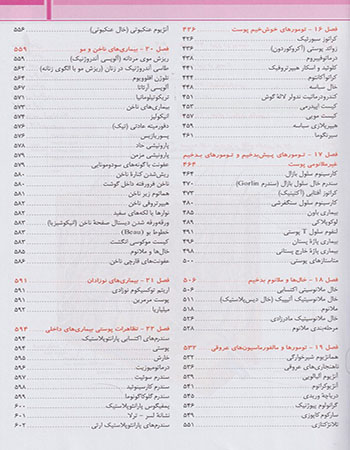 فصل ۱۶ - تومورهای خوش‌خیم پوست ۴۳۶
کراتوز سبورئیک ۴۳۶
زوائد پوستی (آکروکوردون) ۴۳۶
درماتوفیبروم ۴۳۸
کلوئید و اسکار هیپرتروفیک ۴۴۱
کراتوآکانتوم ۴۴۴
خال سباسه ۴۴۸
کندرودرماتیت ندولر لاله گوش ۴۵۱
کیست اپیدرمی ۴۵۳
کیست مویی ۴۵۷
هیپرپلازی سباسه ۴۵۹
سیرنگوما ۴۶۱
فصل ۱۷ - تومورهای پیش‌بدخیم و تومورهای بدخیم
غیرملانومی پوست ۴۶۴
کارسینوم سلول بازال ۴۶۴
سندرم خال سلول بازال (سندرم Gorlin) ۴۷۰
کراتوز آفتابی (اکتینیک) ۴۷۳
کارسینوم سلول سنگفرشی ۴۸۰
بیماری باون ۴۸۵
لوکوپلاکی ۴۸۹
لنفوم سلول T پوستی ۴۹۱
بیماری پاژهٔ پستان ۴۹۶
بیماری پاژهٔ خارج پستانی ۴۹۸
متاستازهای پوستی ۵۰۰
فصل ۱۸ - خال‌ها و ملانوم بدخیم ۵۰۶
خال ملانوسیتی اکتسابی ۵۰۶
خال ملانوسیتیک آتیپیک (خال دیس‌پلاستیک) ۵۱۱
ملانوم ۵۱۸
خال ملانوسیتیک مادرزادی ۵۲۶
مرحله‌بندی ملانوم ۵۲۸
فصل ۱۹ - تومورها و مالفورماسیون‌های عروقی ۵۳۲
همانژیوم شیرخوارگی ۵۳۲
ناهنجاری‌های عروقی ۵۳۶
آنژیوم آلبالویی ۵۳۹
آنژیوکراتوم ۵۴۱
دریاچهٔ وریدی ۵۴۵
گرانولوم پیوژنیک ۵۴۶
سارکوم کاپوزی ۵۴۹
تلانژکتازی ۵۵۱
آنژیوم عنکبوتی (خال عنکبوتی) ۵۵۶
فصل ۲۰ - بیماری‌های ناخن و مو ۵۵۹
ریزش موی مردانه (آلوپسی آندروژنیک) ۵۵۹
طاسی آندروژنیک در زنان (ریزش مو با الگوی زنانه) ۵۶۲
تلوژن افلوویوم ۵۶۴
آلوپسی آرئاتا ۵۶۷
تریکوتیلومانیا ۵۷۱
بیماری‌های ناخن ۵۷۳
انیکولیز ۵۷۴
دفورمیته عادتی (تیک) ۵۷۶
پسوریازیس ۵۷۶
پارونیشی حاد ۵۷۸
پارونیشی مزمن ۵۷۹
عفونت با گونه‌های سودومونایی ۵۷۹
ریش‌شدن کنارهٔ ناخن ۵۸۰
ناخن فرورفته داخل گوشت ۵۸۰
هماتوم زیر ناخن ۵۸۱
هیپرتروفی ناخن ۵۸۲
نوارها یا لکه‌های سفید ۵۸۲
ورقه‌ورقه شدن دیستال صفحهٔ ناخن (انیکوشیزیا) ۵۸۳
خطوط بو (Beau) ۵۸۳
کیست موکوسی انگشت ۵۸۳
خال‌ها و ملانوم ۵۸۵
عفونت‌های قارچی ناخن ۵۸۶
فصل ۲۱ - بیماری‌های نوزادان ۵۹۱
اریتم توکسیکوم نوزادی ۵۹۱
پوست مرمرین ۵۹۱
میلیاریا ۵۹۲
فصل ۲۲ - تظاهرات پوستی بیماری‌های داخلی ۵۹۴
سندرم‌های اکتسابی پارانئوپلاستیک ۵۹۴
پوستی ۵۹۴
خارش ۵۹۵
درماتومیوزیت ۵۹۶
سندرم سوئیت ۵۹۷
سندرم کارسینوئید ۵۹۸
سندرم گلوکاگونوما ۵۹۹
پمفیگوس پارانئوپلاستیک ۶۰۰
نشانهٔ لسر - ترلا ۶۰۱
سندرم‌های پارانئوپلاستیک ارثی ۶۰۲